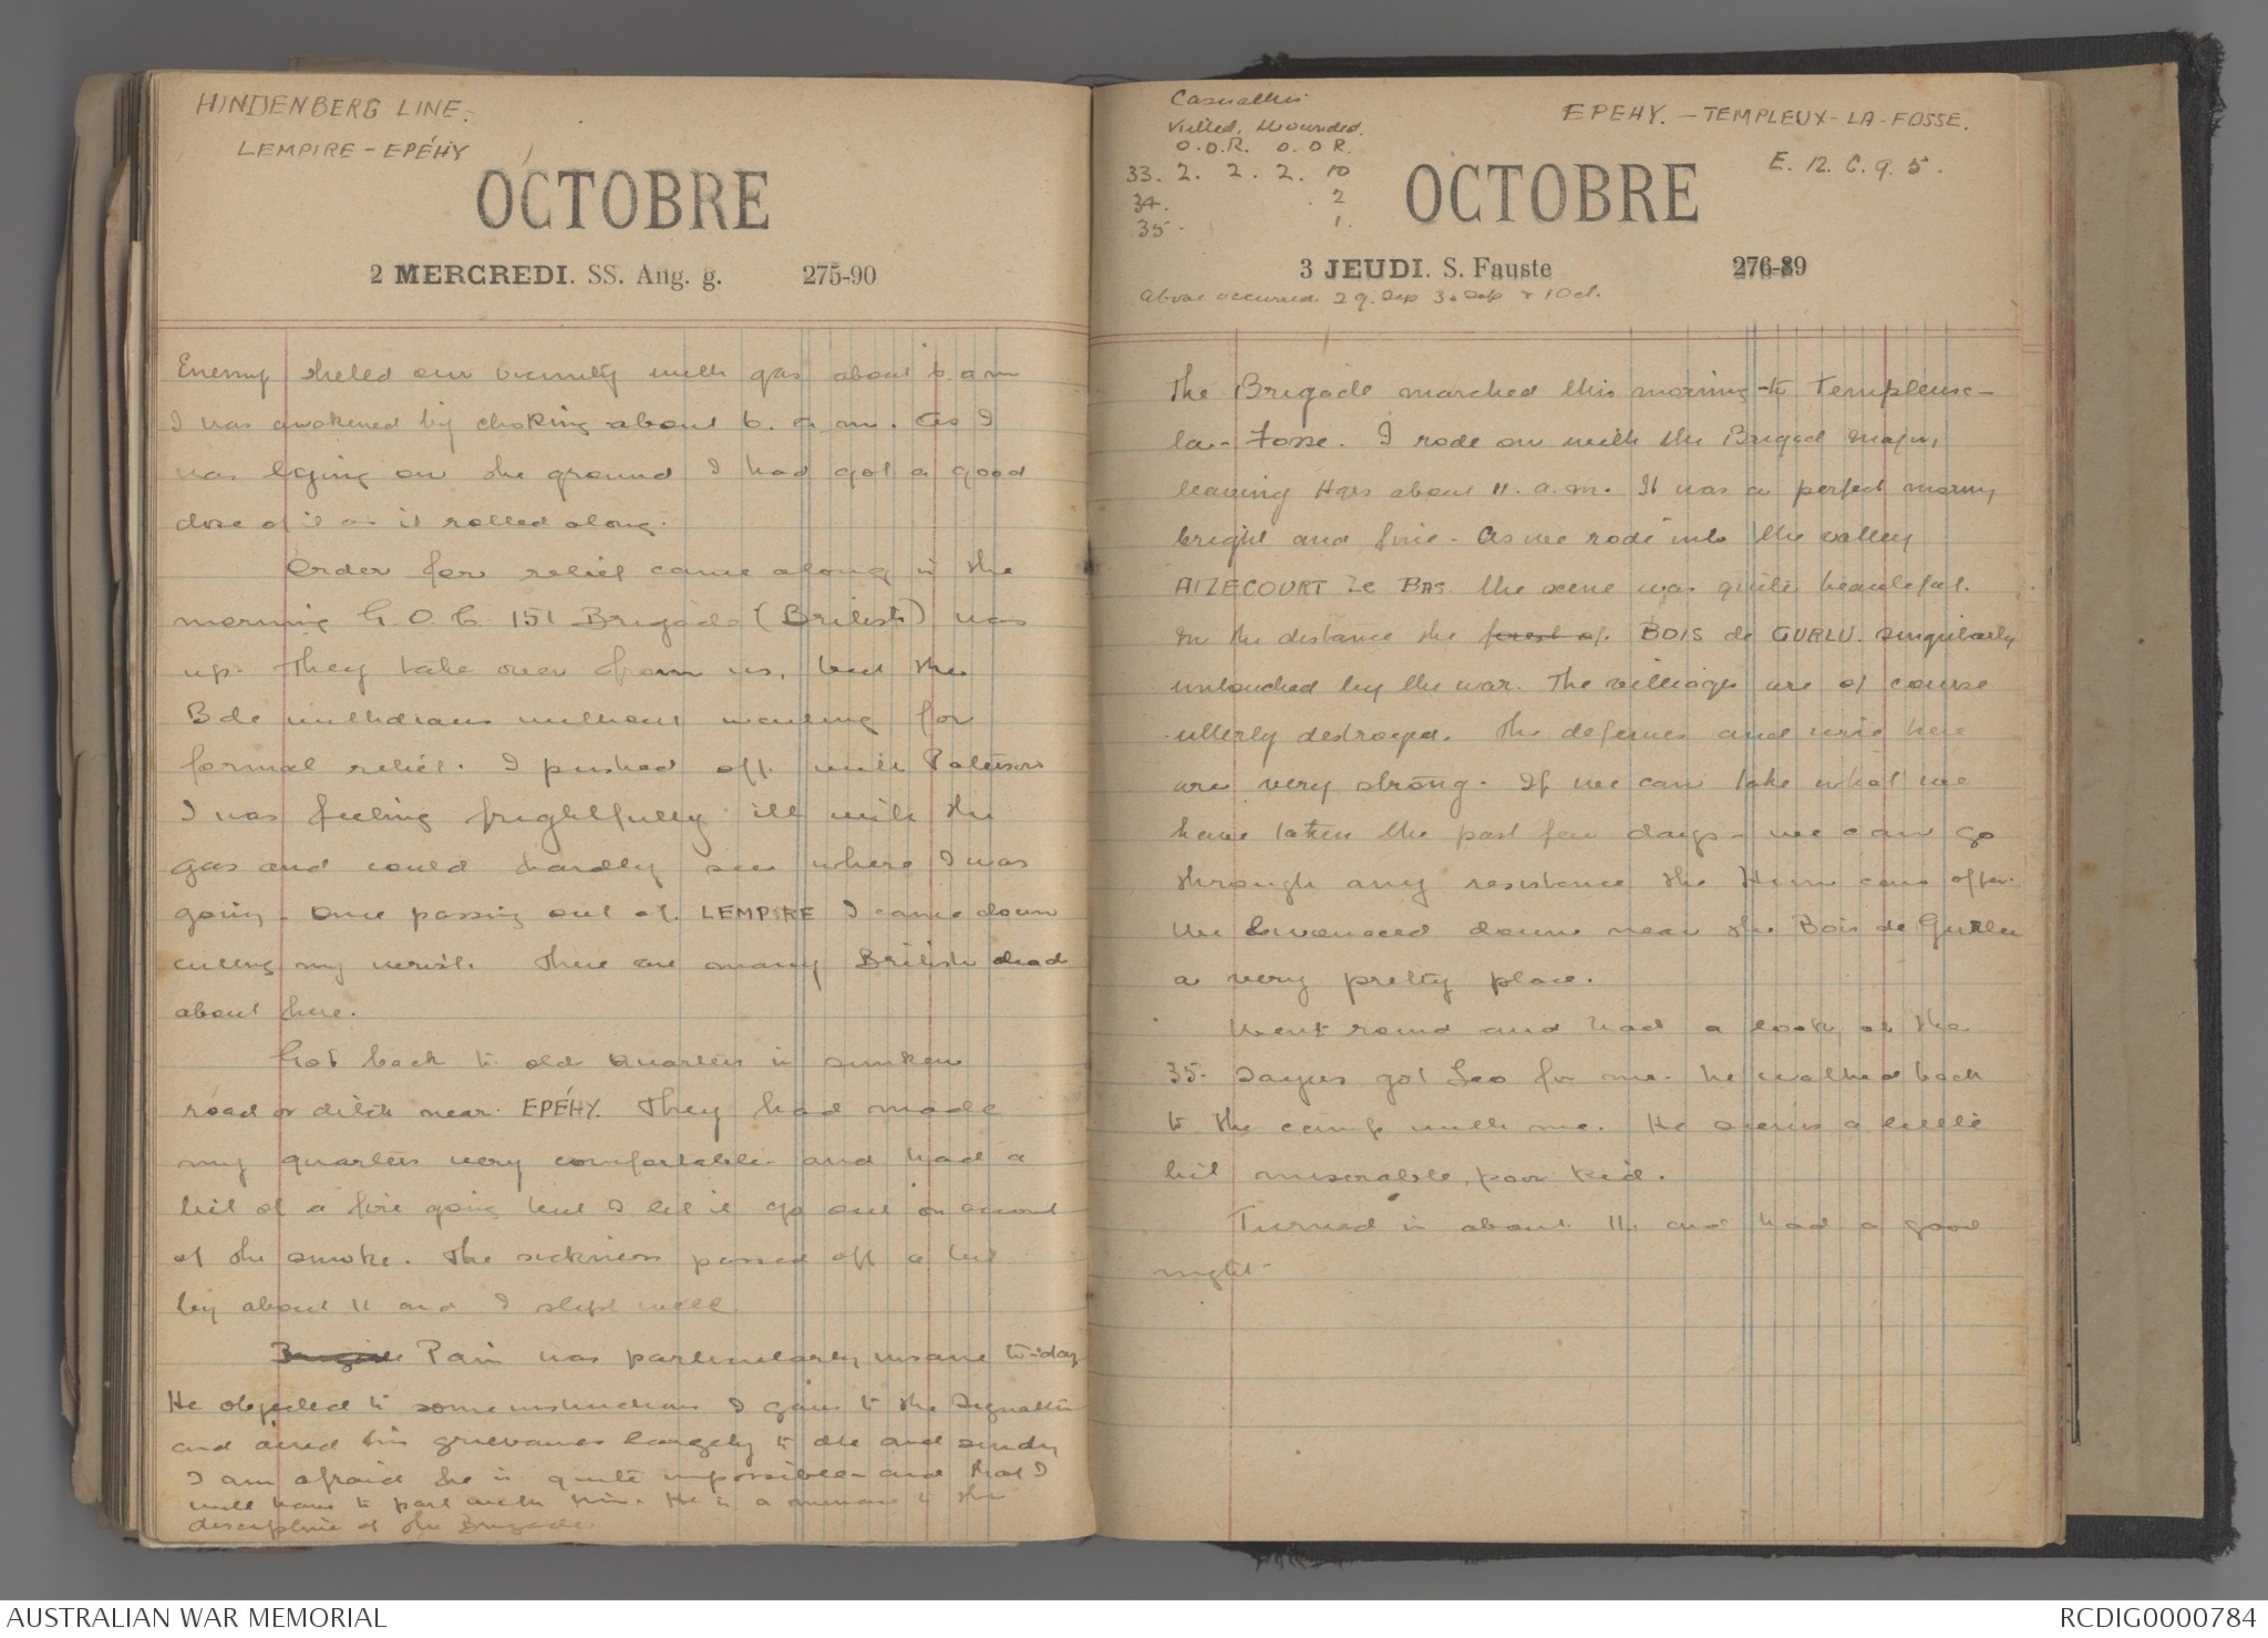 HINDENBERG LINE.
LEMPIRE - EPÉHY
OCTOBRE
2 MERCREDI. SS. Ang. g. 275-90
Enemy sheled our vicinity with gas about 6 am
I was awakened by choking about 6. a.m. As I
was lying on the ground I had got a good
dose of it as it rolled along.
Order for relief came along in the
morning G.O.C. 151 Brigade (British) was
up. They take over from us, but the
Bde withdraws without waiting for
formal relief. I pushed off with Paterson
I was feeling frightfully ill with the
gas and could hardly see where I was
going. Once passing out of LEMPIRE I came down
cutting my wrist. There are many British dead
about here.
Got back to old quarters in sunken
road or ditch near EPÉHY. They had made
my quarters very comfortable and had a
bit of a fire going but I let it go out on account
of the smoke. The sickness passed off a bit
by about 11 and I slept well.
Brigade Pain was particularly insane to-day
He objected to some instructions I gave to the Signallers
and aired his grievances largely to all and sundry
I am afraid he is quite impossible and that I
will have to part with him. He is a menace to the
discipline of the Brigade.
Casualties
Killed, Wounded.
O. O.R. O. O R.
33. 2. 2. 2. 10
34. 2
35. 1.
EPEHY. - TEMPLEUX-LA-FOSSE.
E. 12. C. 9. 5.
OCTOBRE
3 JEUDI. S. Fauste 276-89
Above occurred 29. Sep 30 Sep & 1 Oct.
The Brigade marched this morning to Templeux-
la-Fosse. I rode on with the Brigade Major,
leaving Hqrs about 11. a.m. It was a perfect morning
bright and fine. As we rode into the valley
AIZECOURT Le BAS. the scene was quite beautiful.
In the distance the forest of BOIS de GURLU. singularly
untouched by the war. The villages are of course
utterly destroyed. The defences and wire here
are very strong. If we can take what we
have taken the past few days - we can go
through any resistence the Hun can offer.
We bivouaced down near the Bois de Gurlu
a very pretty place.
Went round and had a look at the
35. Sayers got Leo for me. he walked back
to the camp with me. He seems a little
bit miserable, poor kid.
Turned in about 11. and had a good
night.
AUSTRALIAN WAR MEMORIAL
RCDIG0000784